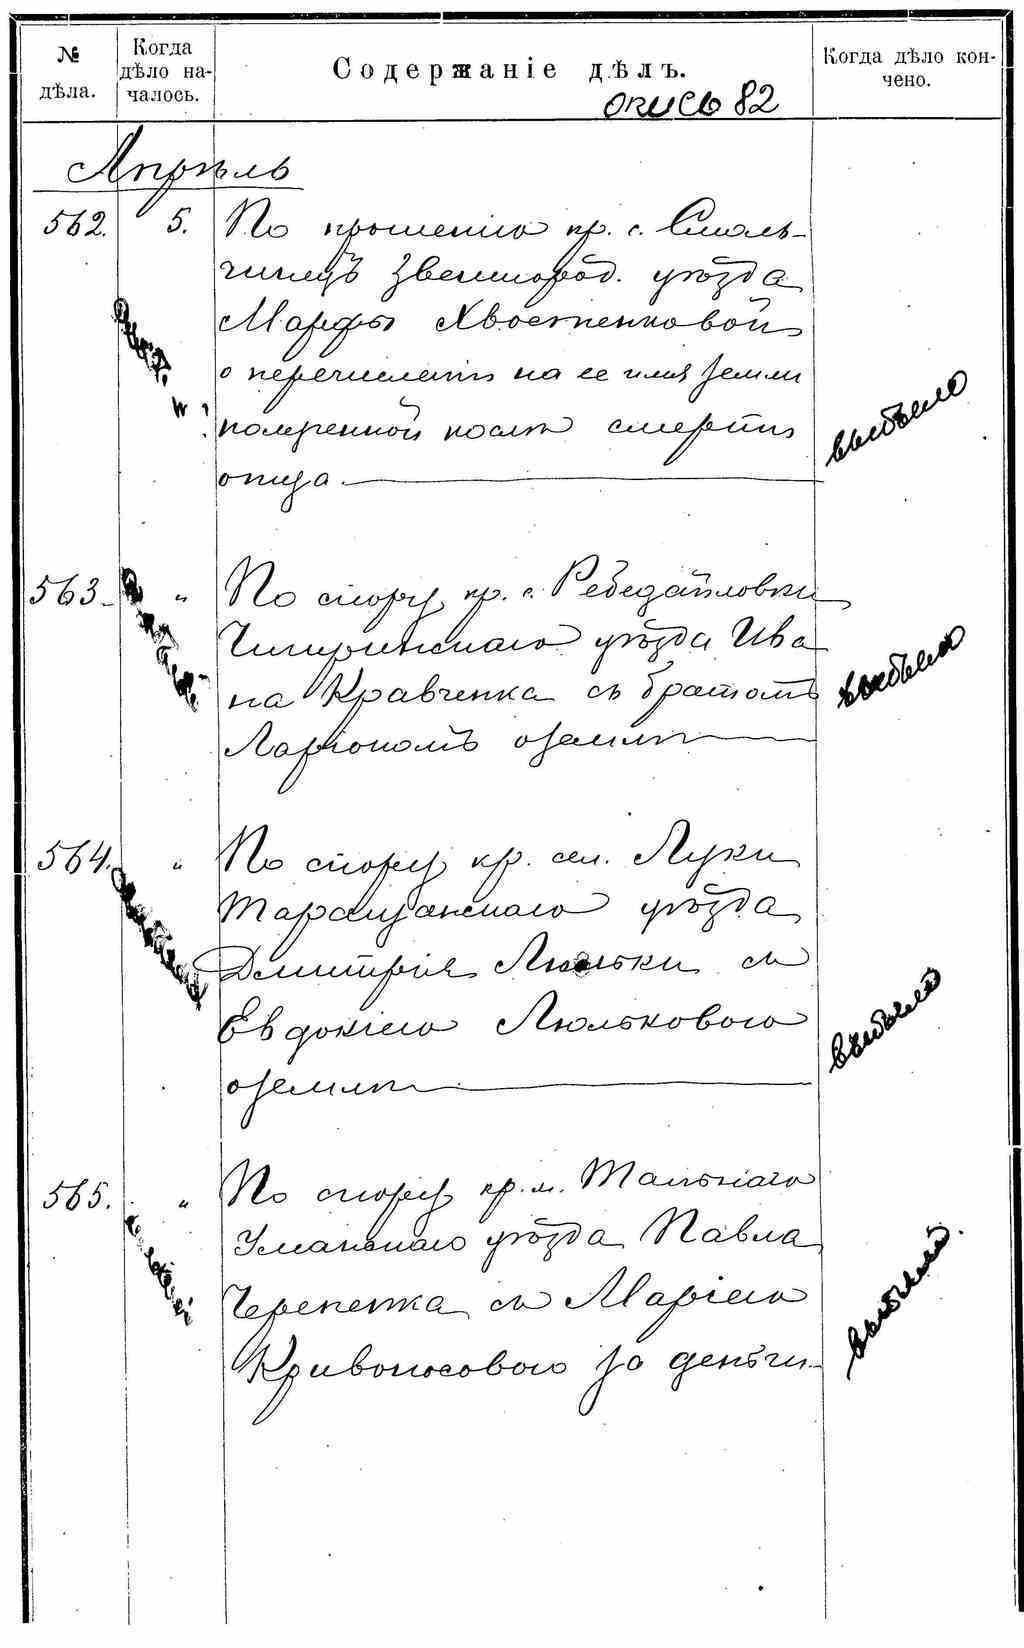 № дѣла.
Когда дѣло началось.
Содержаніе дѣлъ.
Когда дѣло кончено.
опись 82
Апрѣль
562. 5. По прошенію кр. с. Смоль-
чинецъ Звенигород. уѣзда
Марфы Хвостенковой
о перечисленіи на ее имя земли
полученной послѣ смерти
отца.
выбыло
563 " По спору кр. с. Ребедайловки
Чигиринскаго уѣзда Ива
на Кравченка съ братомъ
Ларіономъ о землѣ
выбыло
564. " По спору кр. сел. Луки
Таращанскаго уѣзда
Дмитрія Люльки съ
Евдокіею Люльковою
о землѣ
выбыло
565. " По спору кр. м. Тальнаго
Уманскаго уѣзда Павла
Черепенка съ Маріею
Кривоносовою за деньги
выбыло.